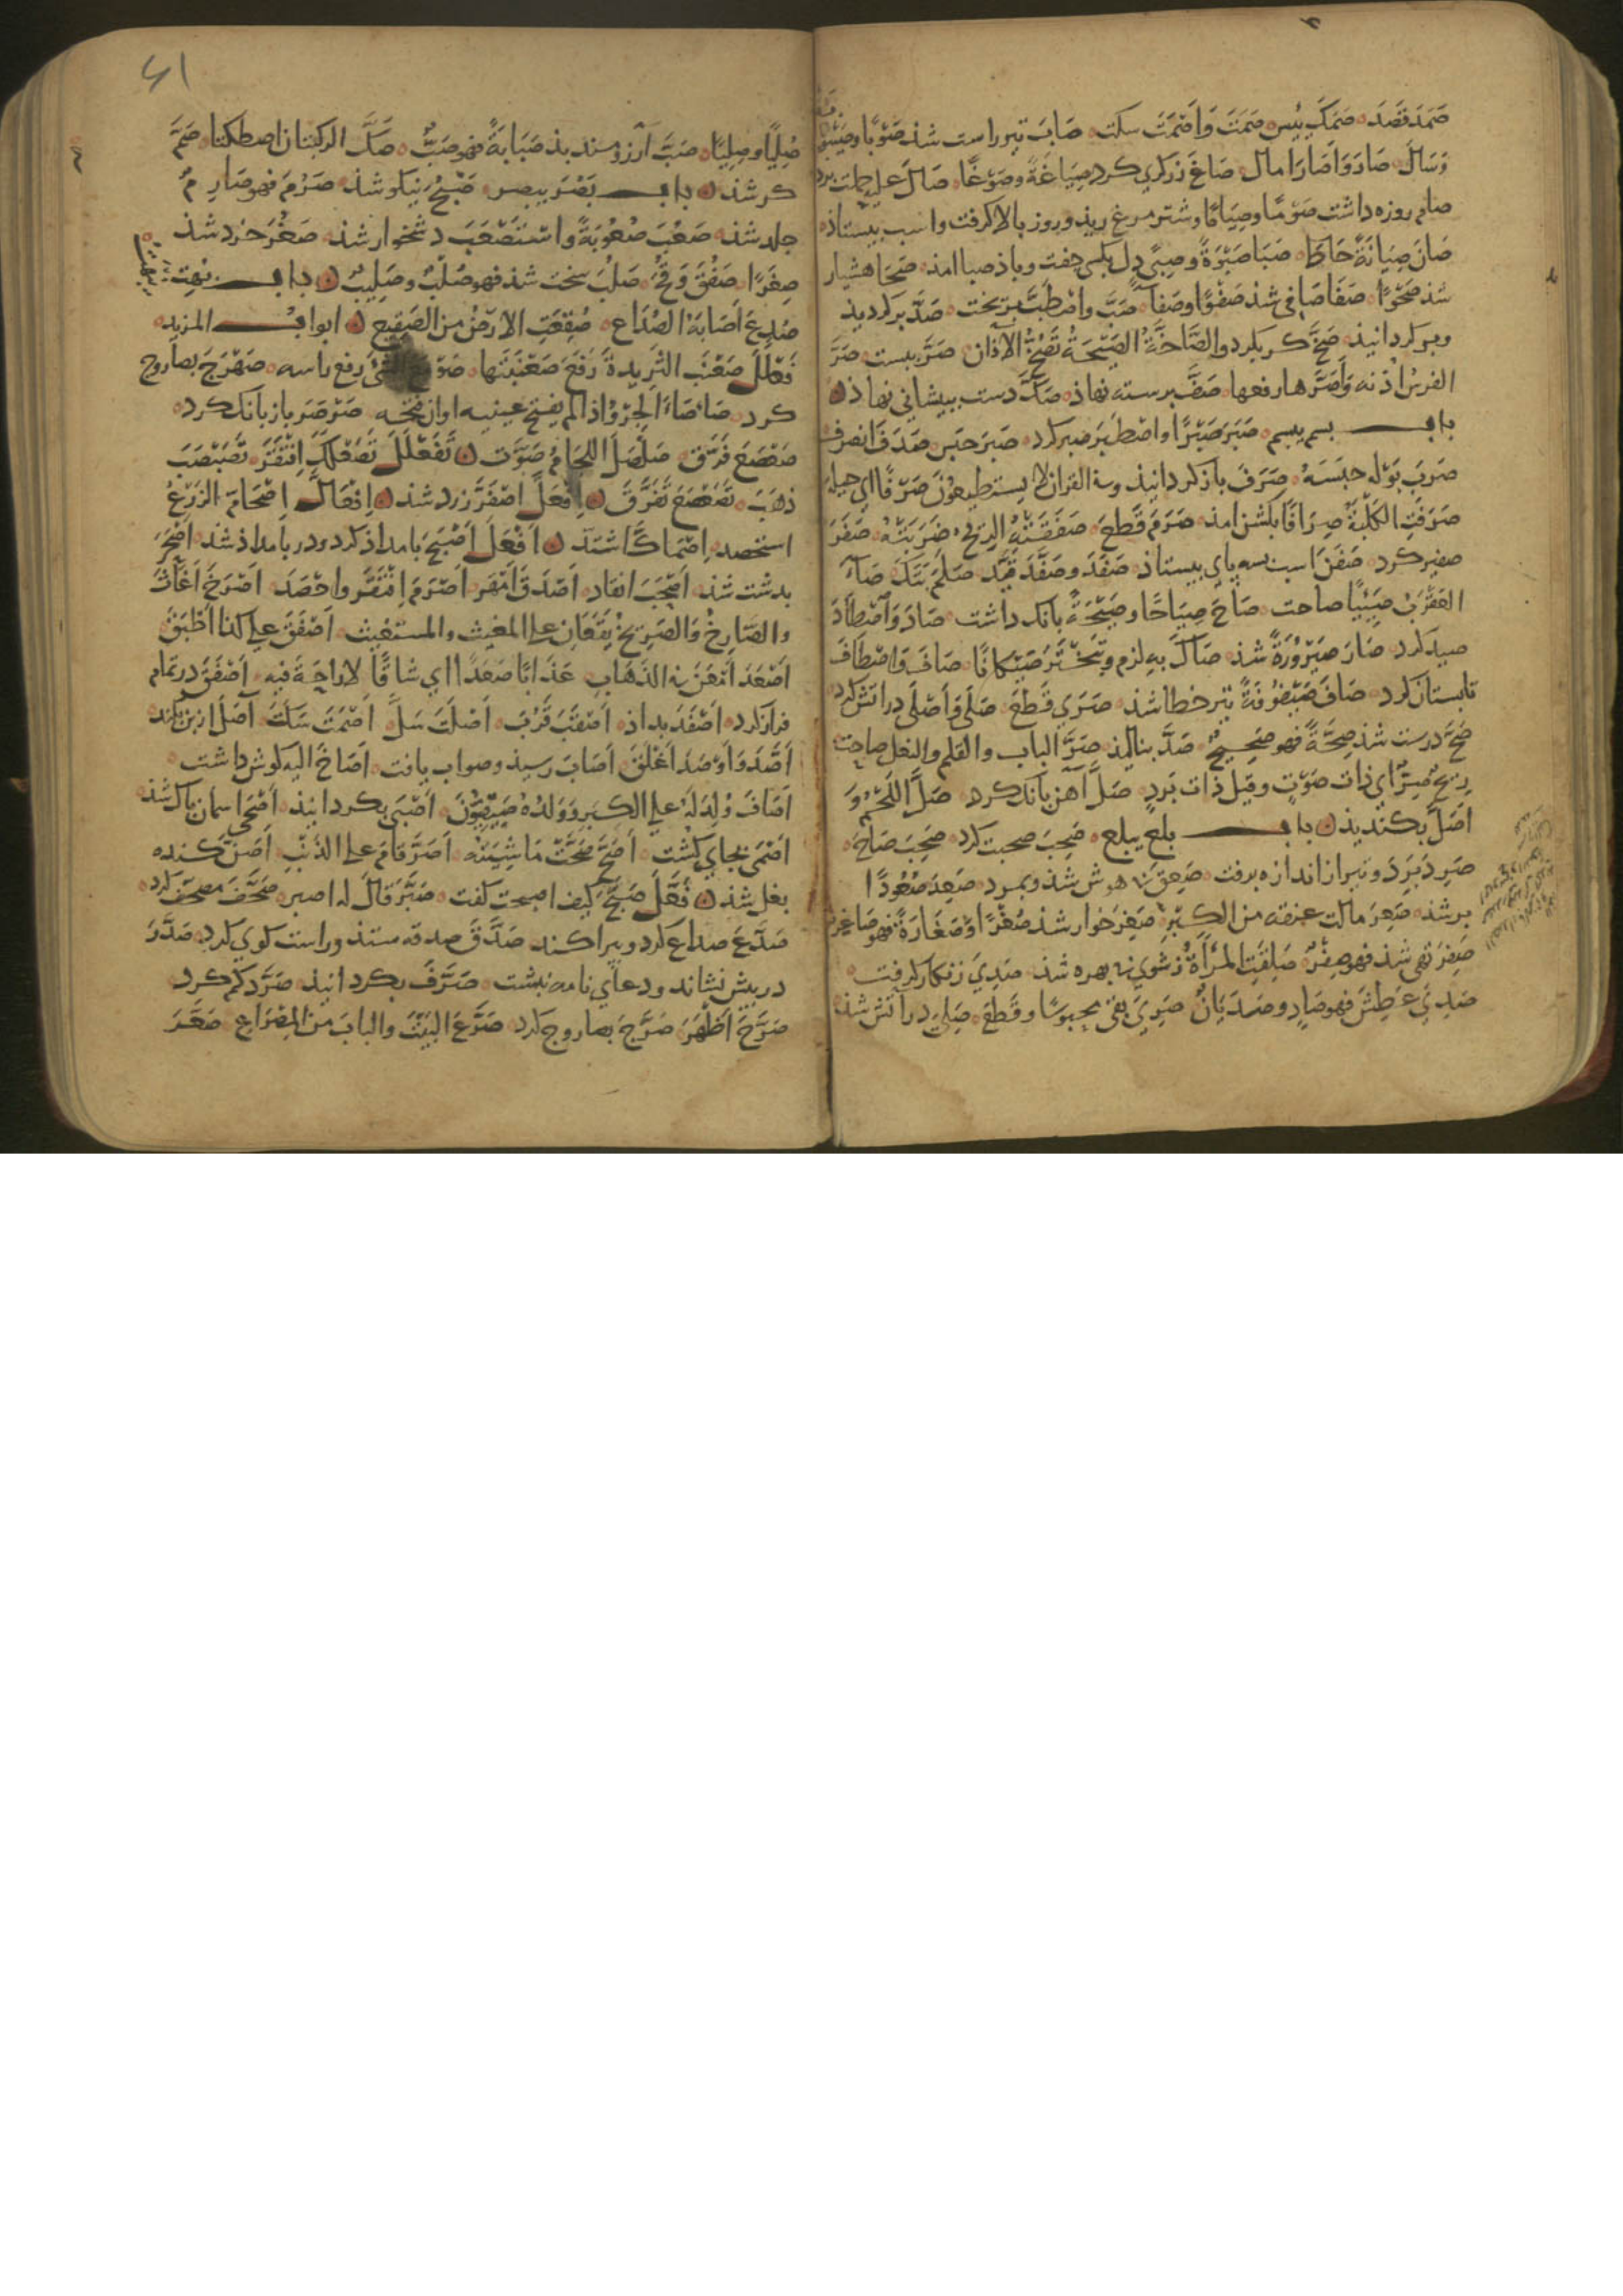 صَمَدَ قَصَدَ صَمَكَ يَبِسَ صَمَتَ وَاَصْمَتَ سكت صَابَ تير راست شذ صَوْبًا
وَسَالَ صَادَ وَاَصَارَ امال صَاغَ زركري كرد صِيَاغَةً وصَوْغًا صَالَ عليه حملت برد
صام روزه داشت صَوْمًا وصِيَامًا وشتر مرغ ريذ وروز بالا كرفت واسب بيستاذ
صَانَ صِيَانَةً حَاطَ صَبَا صَبْوَةً وصبي دل بكسي جفت وباذ صبا امذ صَحَا هشيار
شذ صَحْوًا صَفَا صَافي شذ صَفْوًا وصَفآءً صَبَّ واصْطَبَّ بريخت صَدَّ بركرديذ
وبركردانيذ صَخَّ كر بكرد والصَّاخَّةُ الصَّيْحَةُ تَصُخُّ الآذان صَرَّ ببست صَرَّ
الفرسُ اُذنه وَاَصَرَّها رفعها صَفَّ برسته نهاذ صَكَّ دست بپيشاني نهاذ
باب بسم يبسم صَبَرَ صَبْرًا واصْطَبَرَ صبر كرد صَبَرَ حبس صَدَفَ انصرف
صَرَبَ بَوْله حبَسَهُ صَرَفَ باز كردانيذ وفي القران لا يستطيعون صَرْفًا اي حيلة
صَرَفَتِ الكَلْبَةُ صِرَافًا بكشن امذ صَرَمَ قَطعَ صَفَقَتْهُ الريحُ ضَرَبَتْهُ صَفَرَ
صفير كرد صَفَنَ اسب بسه پاي بيستاذ صَفَدَ وصَفَّدَ قَيَّد صَلَمَ بَتَكَ صَآءَ
العَقْرَبُ صَئِيًا صاحت صَاحَ صِيَاحًا وصَيْحَةً بانك داشت صَادَ وَاصْطَادَ
صيد كرد صَارَ صَيْرُوْرَةً شذ صَاكَ به لزم صَيْكانًا صَافَ وَاصْطَافَ
تابستان كرد صَافَ صَيْفُوْفَةً تير خطا شذ صَرَي قَطَعَ صَلَى وَاَصْلَى در اتش كرد
صَحَّ درست شذ صِحَّةً فهو صَحِيحٌ صَدَّ بناليذ صَرَّ الباب والقلم والنعل صاحت
رِيحٌ صِرٌّ اي ذات صَوْتٍ وقيل ذات بَرَدٍ صَلَّ آهن بانك كرد صَلَّ اللَّحْمُ وَ
اَصَلَّ بكنديذ باب بلع يبلع صَحِبَ صحبت كرد صَحِبَ صَاحَ
صَرِدَ بَرَدَ وتير از اندازه برفت صَعِقَ بي هوش شذ وبمرد صَعِدَ صُعُودًا
برشذ صَعِرَ مالت عنقه من الكِبْرِ صَغِرَ خوار شذ صُغْرًا وصَغَارَةً فهو صَاغِرٌ
صَفِرَ تهى شذ فهو صِفْرٌ صَلِفَتِ المَرْأَةُ زشوي بي بهره شذ صَدِيَ زنكار كرفت
صَدِيَ عَطِشَ فهو صَادٍ وصَدْيَانُ صَرِيَ بقي محبوسًا وقَطَعَ صَلِيَ در آتش شذ
٤١
صُلِيًّا وصِلِيًّا صَبَّ آرزومند بذ صَبَابَةً فهو صَبٌّ صَكَّ الركبتان اصطكتا صَمَّ
كر شذ باب بَصُرَ يبصر صَبُحَ نيكو شذ صَرُمَ فهو صَارِمٌ
جلد شذ صَعُبَ صُعُوبَةً وَاسْتَصْعَبَ دشخوار شذ صَغُرَ خرد شذ
صِغَرًا صَفُقَ وَقُحَ صَلُبَ سخت شذ فهو صُلْبٌ وصَلِيبٌ باب بُهت
صُدِعَ اَصَابَهُ الصُّدَاع صُقِعَتِ الارضُ من الصَّقِيع ابواب المزيد
فَعْلَلَ صَعْنَبَ الثَّرِيدةَ رَفَعَ صَعْنَبَتَها رفع راسه صَهْرَجَ بصاروج
كرد صَاْصَاءَ الجِرْوُ اذا لم يفتح عينيه اوان فتحه صَرْصَرَ باز بانك كرد
صَعْصَعَ فَرَّقَ صَلْصَلَ اللِجَامُ صَوَّتَ تَفَعْلَلَ تَصَعْلَكَ اِفْتَقَرَ تَصَبْصَبَ
ذهَبَ تَصَعْصَعَ تَفَرَّقَ اِفْعَلَّ اصْفَرَّ زرد شذ اِفْعَالَّ اصْحَامَّ الزَرْعُ
استحصد اِصْمَاكَّ اشتدّ اَفْعَلَ اَصْبَحَ بامداذ كرد ودر بامداذ شذ اَصْحَرَ
بدشت شذ اَصْحَبَ انقاد اَصْدَقَ اَمْهَر اَصْرَمَ اِفْتَقَرَ واحْصَدَ اَصْرَخَ اَغَاثَ
والصَّارِخُ وَالصَرِيخُ يَقَعَانِ على المغيث والمستغيث اَصْفَقَ على كذا اَطْبَقَ
اَصْعَدَ اَمْعَنَ في الذَهَابِ عَذَابًا صَعَدًا اي شاقًا لا راحَةَ فيه اَصْفَقَ در تمام
فراز كرد اَصْفَدَ بداذ اَصْقَبَ قَرُبَ اَصْلَتَ سَلَّ اَصْمَتَ سَكَتَ
اَصَّدَ وَاَوْصَدَ اَغْلَقَ اَصَابَ رسيذ وصواب يافت اَصَاخَ اليه كوش داشت
اَصَافَ وُلِدَ لهُ على الكِبَرِ وَوَلدُهُ صَيْفِيُّوْنَ اَصْبَى بكردانيذ اَصْحَى اسمان پاك شذ
اَصْمَى بجاي كشت اَصَحَّ صَحَّتْ مَاشِيَتُه اَصَرَّ قامَ على الذنْبِ اَصَنَّ كنده
بغل شذ فَعَّلَ صَبَّحَ كيف اصبحت كفت صَبَّرَ قالَ له اصبر صَحَّفَ مصحّف كرد
صَدَّعَ صداع كرد وپراكند صَدَّقَ صدقه ستذ وراست كوي كرد صَدَّرَ
در پيش نشاند ودعاي نامه نبشت صَرَّفَ بكردانيذ صَرَّدَ كم كرد
صَرَّحَ اَظْهَرَ صَرَّجَ بصاروج كرد صَرَّعَ البَيْتَ والبابَ من المِصْرَاعِ صَعَّرَ